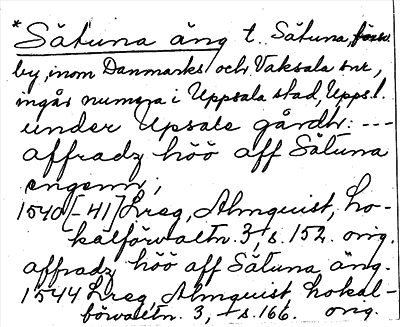 *Sätuna äng t. Sätuna, försv.
by, inom Danmarks och Vaksala snr,
ingår numera i Uppsala stad, Uppl.
under Upsale gårdh: ---
affradz höö aff Sätuna
engenn;
1540[-41] Lreg, Almquist, Lo-
kalförvaltn. 3, s. 152. orig.
affradz höö aff Sätuna äng.
1544 Lreg, Almquist Lokal-
förvaltn. 3, s. 166. orig.